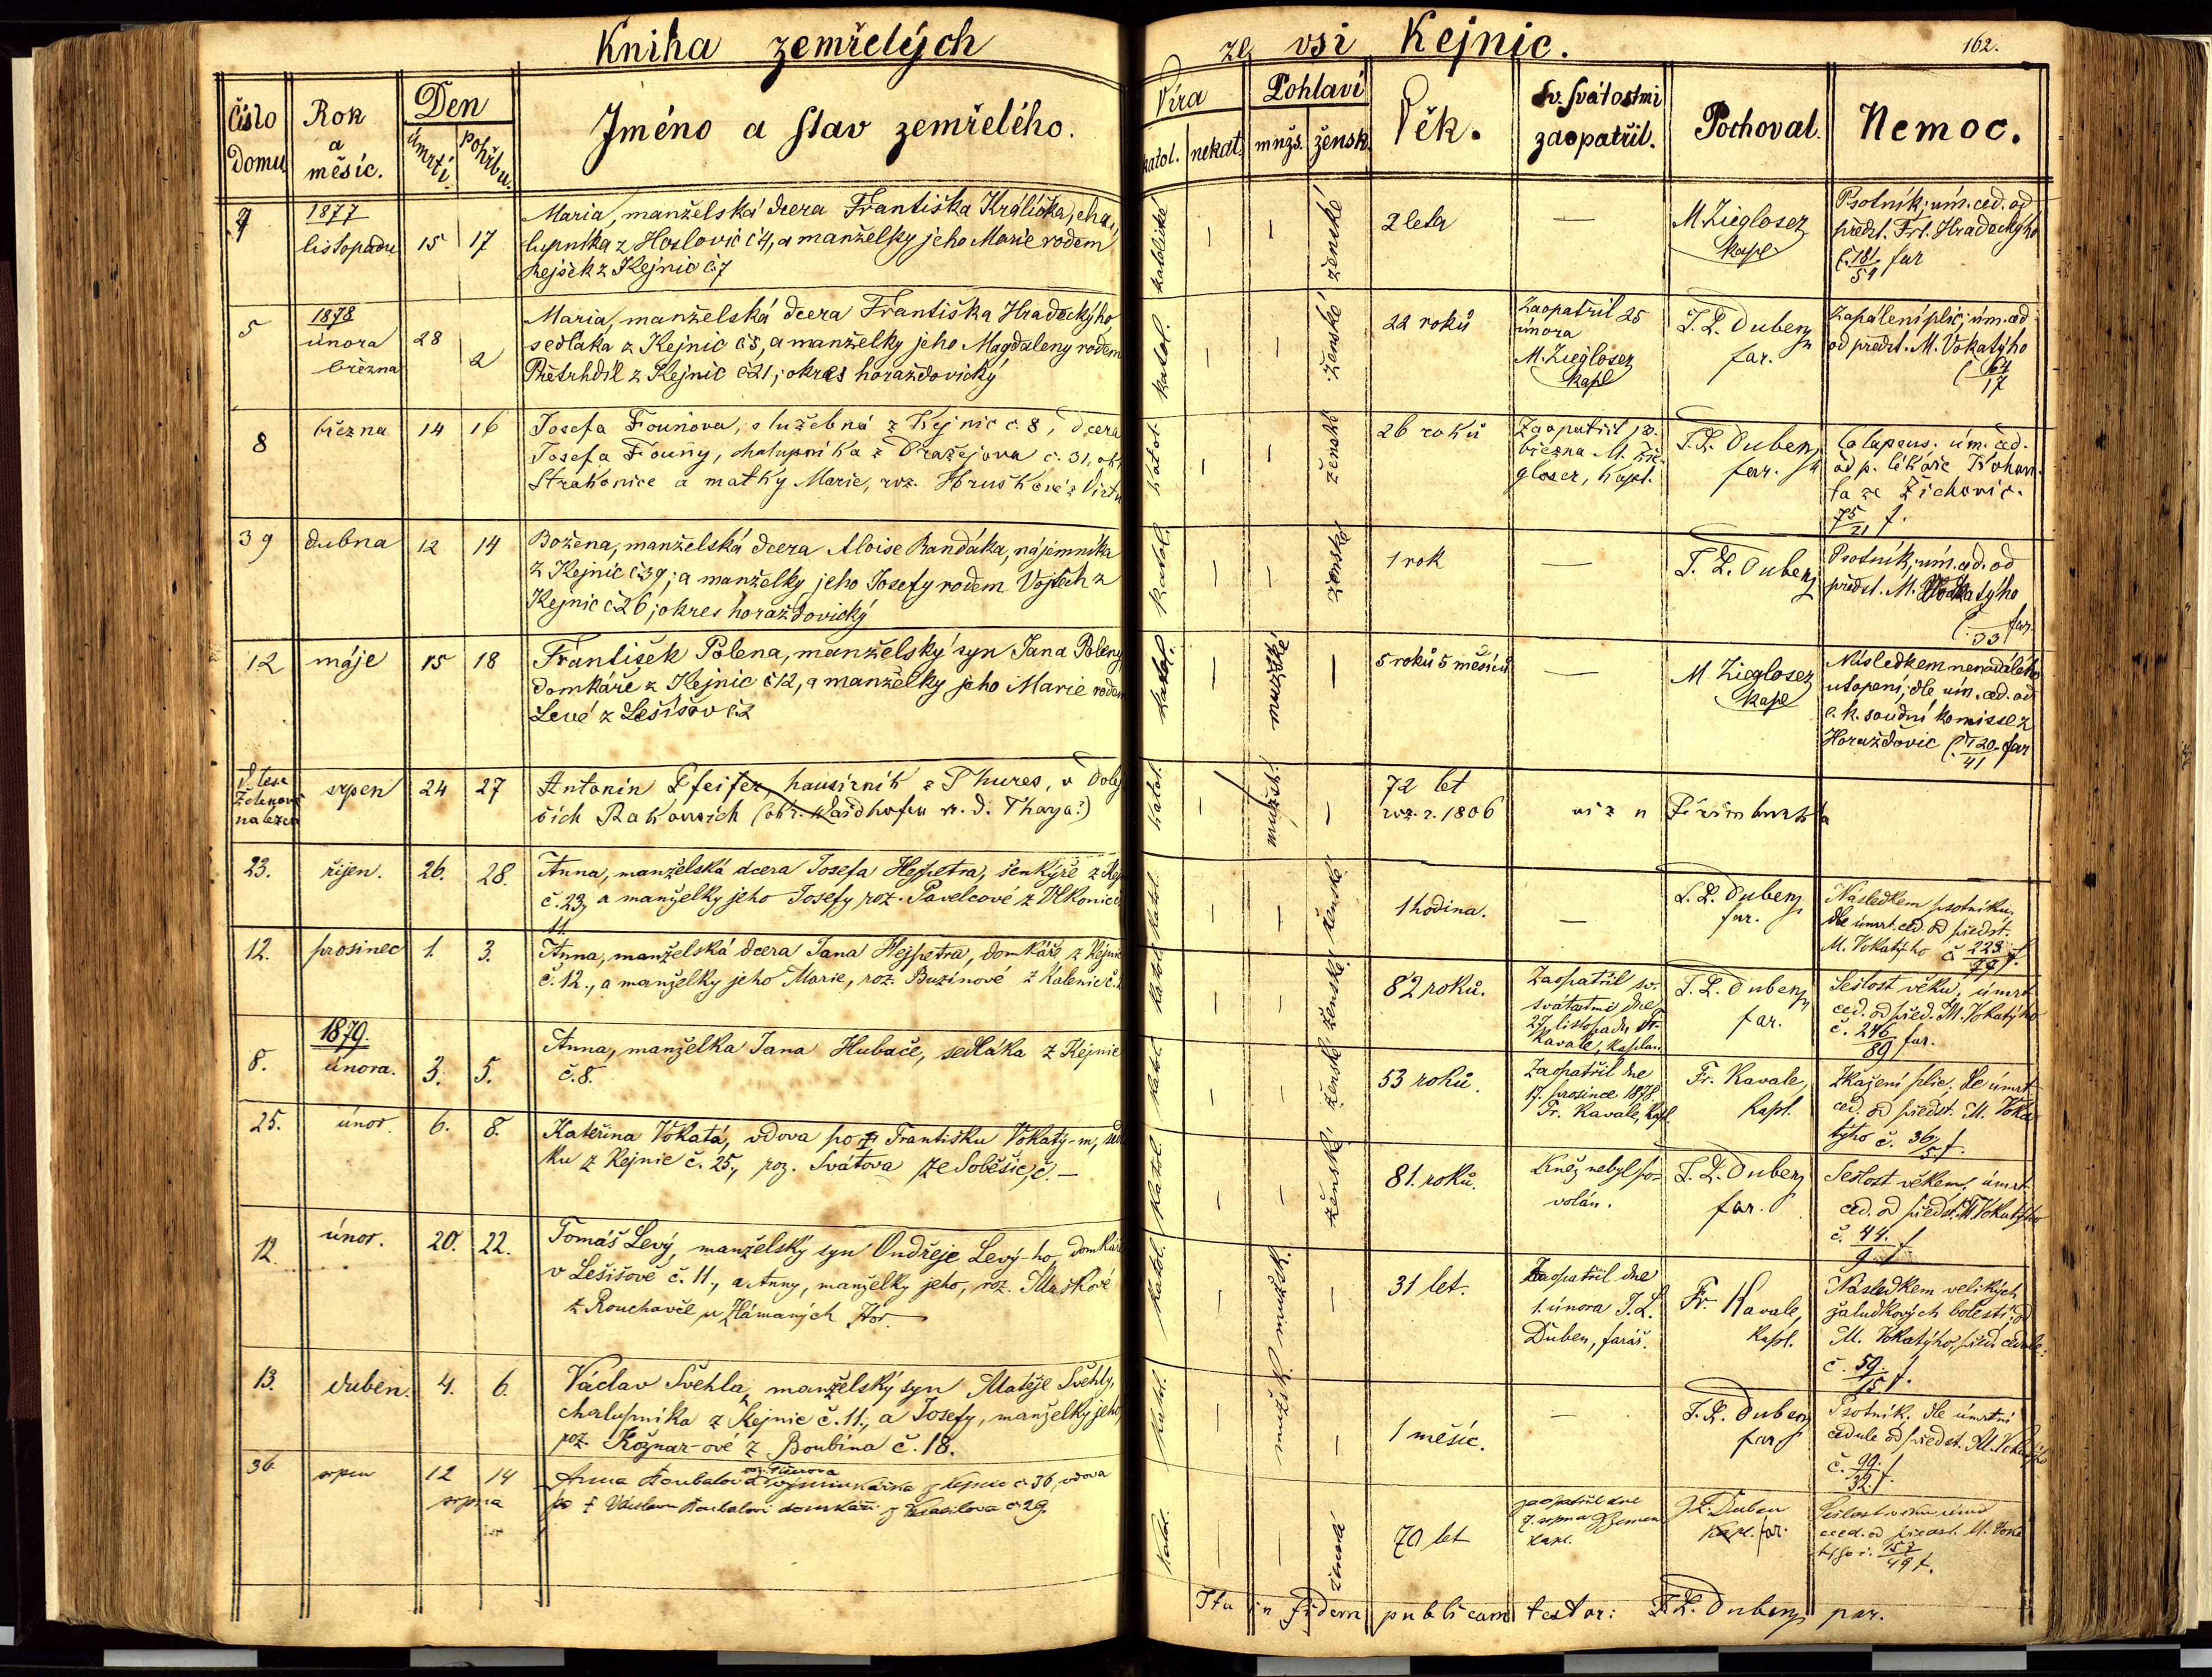 Kniha zemřelých ze vsi Kejnic.
162.
Číslo Domu
Rok a měsíc.
Den
úmrtí. pohřbu.
Jméno a stav zemřelého.
Víra
katol. nekat.
Pohlaví
mužs. žensk.
Věk.
Sv. Svátostmi zaopatřil.
Pochoval.
Nemoc.
7 1877 listopadu 15 17
Maria, manželská dcera Františka Králíčka, cha-
lupníka z Hoslovic č 4, a manželky jeho Marie rodem
Rejšek z Kejnic č.7
katolické — — ženské
2 leta
—
M. Ziegloser
kapl
Psotník; úm. ced. od
předst. Frt. Hradeckýho
č. 181/51 far
5 1878 února března 28 2
Maria, manželská dcera Františka Hradeckýho
sedláka z Kejnic č 5, a manželky jeho Magdaleny rodem
Přetrhdil z Kejnic č 21; okres horažďovický
katol. — — ženské
22 roků
Zaopatřil 25
února
M. Ziegloser
kapl
J. L. Duben
far.
Zapálení plic; úm. ced.
od předst. M. Vokatýho
č 64/17
8 března 14 16
Josefa Fouňova, služebná z Kejnic č. 8, dcera
Josefa Fouňy, chalupníka z Dražejova č. 31, ok.
Strakonice a matky Marie, roz. Hruškové z
katol. — — ženské
26 roků
Zaopatřil
března M. Zie-
gloser, kapl.
J. L. Duben
far.
Colapsus. úm. ced.
od p. lékaře Kohou-
ta ze Žichovic.
75/21 f.
39 dubna 12 14
Božena, manželská dcera Aloise Randáka, nájemníka
z Kejnic č 39; a manželky jeho Josefy rodem Vojtěch z
Kejnic č 26; okres horažďovický
katol. — — ženské
1 rok
—
J. L. Duben
Psotník; úm. ced. od
předst. M. Vokatýho
č. /33 far.
12 máje 15 18
František Polena, manželský syn Jana Poleny
domkáře z Kejnic č 12, a manželky jeho Marie rodem
Levé z Lešišov č.2
katol. — mužské —
5 roků 5 měsíců
—
M. Ziegloser
kapl
Následkem nenadálého
utopení; dle úm. ced. od
c. k. soudní komisse z
Horažďovic č. 120/41 far
V lese
nalezen
srpen 24 27
Antonín Pfeifer, hausírník z Thures, v Dolej-
ších Rakousích (okr. Waidhofen n. d. Thaya?)
katol. — mužské —
72 let
roz. r. 1806
viz u
23. říjen. 26. 28.
Anna, manželská dcera Josefa Hejpetra, šenkýře z Kej
č. 23, a manželky jeho Josefy roz. Pavelcové z Vlkonic č.
11.
katol. — — ženské
1 hodina.
—
J. L. Duben
far.
Následkem psotníku,
dle úmrt. ced. od předst.
M. Vokatýho č 223/79 f.
12. prosinec 1. 3.
Anna, manželská dcera Jana Hejpetra, domkáře z Kejnic
č. 12., a manželky jeho Marie, roz. Buzinové z Kalenic č.
katol. — — ženské
82 roků.
Zaopatřil sv.
svátostmi dne
27. listopadu Fr.
Kavale, kaplan
J. L. Duben
far.
Sešlost věku, úmrt.
ced. od před. M. Vokatýho
č. 246/89 far.
8. 1879. února. 3. 5.
Anna, manželka Jana Hubače, sedláka z Kejnic
č. 8.
katol. — — ženské
53 roků.
Zaopatřil dne
17. prosince 1878.
Fr. Kavale, kapl.
Fr. Kavale,
kapl.
Zkažení plic. dle úmrt.
ced. od předst. M. Voka-
týho č. 36/5 f.
25. únor. 6. 8.
Kateřina Vokatá, vdova po † Františku Vokatý-m, sed
ku z Kejnic č. 25., roz. Svátova ze Soběšic, č. —
katol. — — ženské
81. roků.
Kněz nebyl po-
volán.
J. L. Duben
far.
Sešlost věkem, úmrt.
ced. od předst. M. Vokatýho
č. 44/9 f.
12. únor. 20. 22.
Tomáš Levý, manželský syn Ondřeje Levý-ho, domkáře
v Lešišově č. 11., a Anny, manželky jeho, roz. Maškové
z Rouchavče u Hor.
katol. — mužsk. —
31 let.
Zaopatřil dne
1. února J. L.
Duben, farář.
Fr. Kavale,
kapl.
Následkem velikých
žaludkových bolestí, od
M. Vokatýho, před. cedule.
č. 59/15 f.
13. duben. 4. 6.
Václav Švehla, manželský syn Matěje Švehly,
chalupníka z Kejnic č. 11., a Josefy, manželky jeho,
roz. Kožnar-ové z Boubína č. 18.
katol. — mužsk. —
1 měsíc.
—
J. L. Duben
far
Psotník. dle úmrtní
cedule od předst. M. Vokatýho
č. 90/32 f.
36 srpen 12 14
srpna
Anna Koubalová z Kejnic č 36, vdova
po † Václavu Koubalovi domkáři z Krasilova č 29.
katol. — — ženská
70 let
zaopatřil dne
7. srpna Zeman
kapl.
J. L. Duben
far.
Sešlost věku úmr
ced. od předst. M. Voka
týho č. 157/49 f.
Ita in fidem publicam testor: J. L. Duben par.